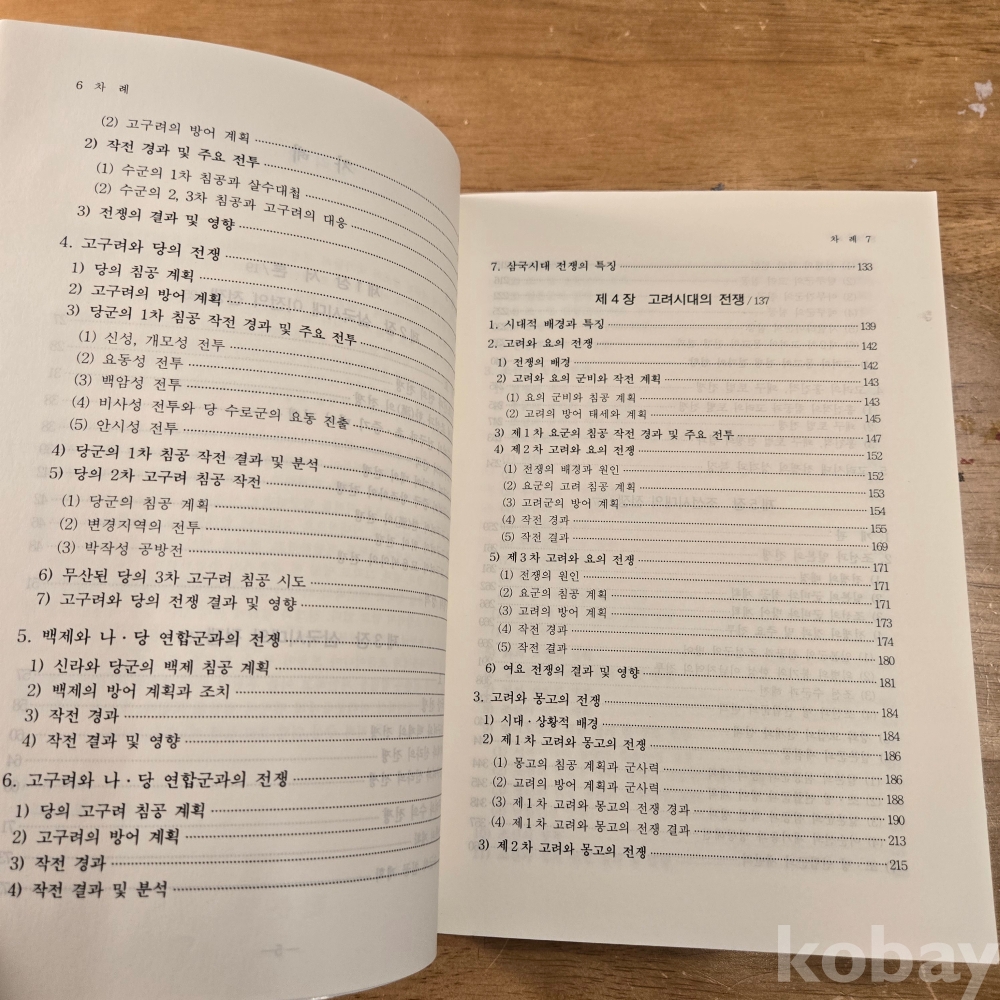 6 차 례
(2) 고구려의 방어 계획
2) 작전 경과 및 주요 전투
(1) 수군의 1차 침공과 살수대첩
(2) 수군의 2, 3차 침공과 고구려의 대응
3) 전쟁의 결과 및 영향
4. 고구려와 당의 전쟁
1) 당의 침공 계획
2) 고구려의 방어 계획
3) 당군의 1차 침공 작전 경과 및 주요 전투
(1) 신성, 개모성 전투
(2) 요동성 전투
(3) 백암성 전투
(4) 비사성 전투와 당 수로군의 요동 진출
(5) 안시성 전투
4) 당군의 1차 침공 작전 결과 및 분석
5) 당의 2차 고구려 침공 작전
(1) 당군의 침공 계획
(2) 변경지역의 전투
(3) 박작성 공방전
6) 무산된 당의 3차 고구려 침공 시도
7) 고구려와 당의 전쟁 결과 및 영향
5. 백제와 나·당 연합군과의 전쟁
1) 신라와 당군의 백제 침공 계획
2) 백제의 방어 계획과 조치
3) 작전 경과
4) 작전 결과 및 영향
6. 고구려와 나·당 연합군과의 전쟁
1) 당의 고구려 침공 계획
2) 고구려의 방어 계획
3) 작전 경과
4) 작전 결과 및 분석
차 례 7
7. 삼국시대 전쟁의 특징 133
제4장 고려시대의 전쟁/137
1. 시대적 배경과 특징 139
2. 고려와 요의 전쟁 142
1) 전쟁의 배경 142
2) 고려와 요의 군비와 작전 계획 143
(1) 요의 군비와 침공 계획 143
(2) 고려의 방어 태세와 계획 145
3) 제1차 요군의 침공 작전 경과 및 주요 전투 147
4) 제2차 고려와 요의 전쟁 152
(1) 전쟁의 배경과 원인 152
(2) 요군의 고려 침공 계획 153
(3) 고려군의 방어 계획 154
(4) 작전 경과 155
(5) 작전 결과 169
5) 제3차 고려와 요의 전쟁 171
(1) 전쟁의 원인 171
(2) 요군의 침공 계획 171
(3) 고려의 방어 계획 173
(4) 작전 경과 174
(5) 작전 결과 180
6) 여요 전쟁의 결과 및 영향 181
3. 고려와 몽고의 전쟁 184
1) 시대·상황적 배경 184
2) 제1차 고려와 몽고의 전쟁 186
(1) 몽고의 침공 계획과 군사력 186
(2) 고려의 방어 계획과 군사력 188
(3) 제1차 고려와 몽고의 전쟁 경과 190
(4) 제1차 고려와 몽고의 전쟁 결과 213
3) 제2차 고려와 몽고의 전쟁 215
kobay